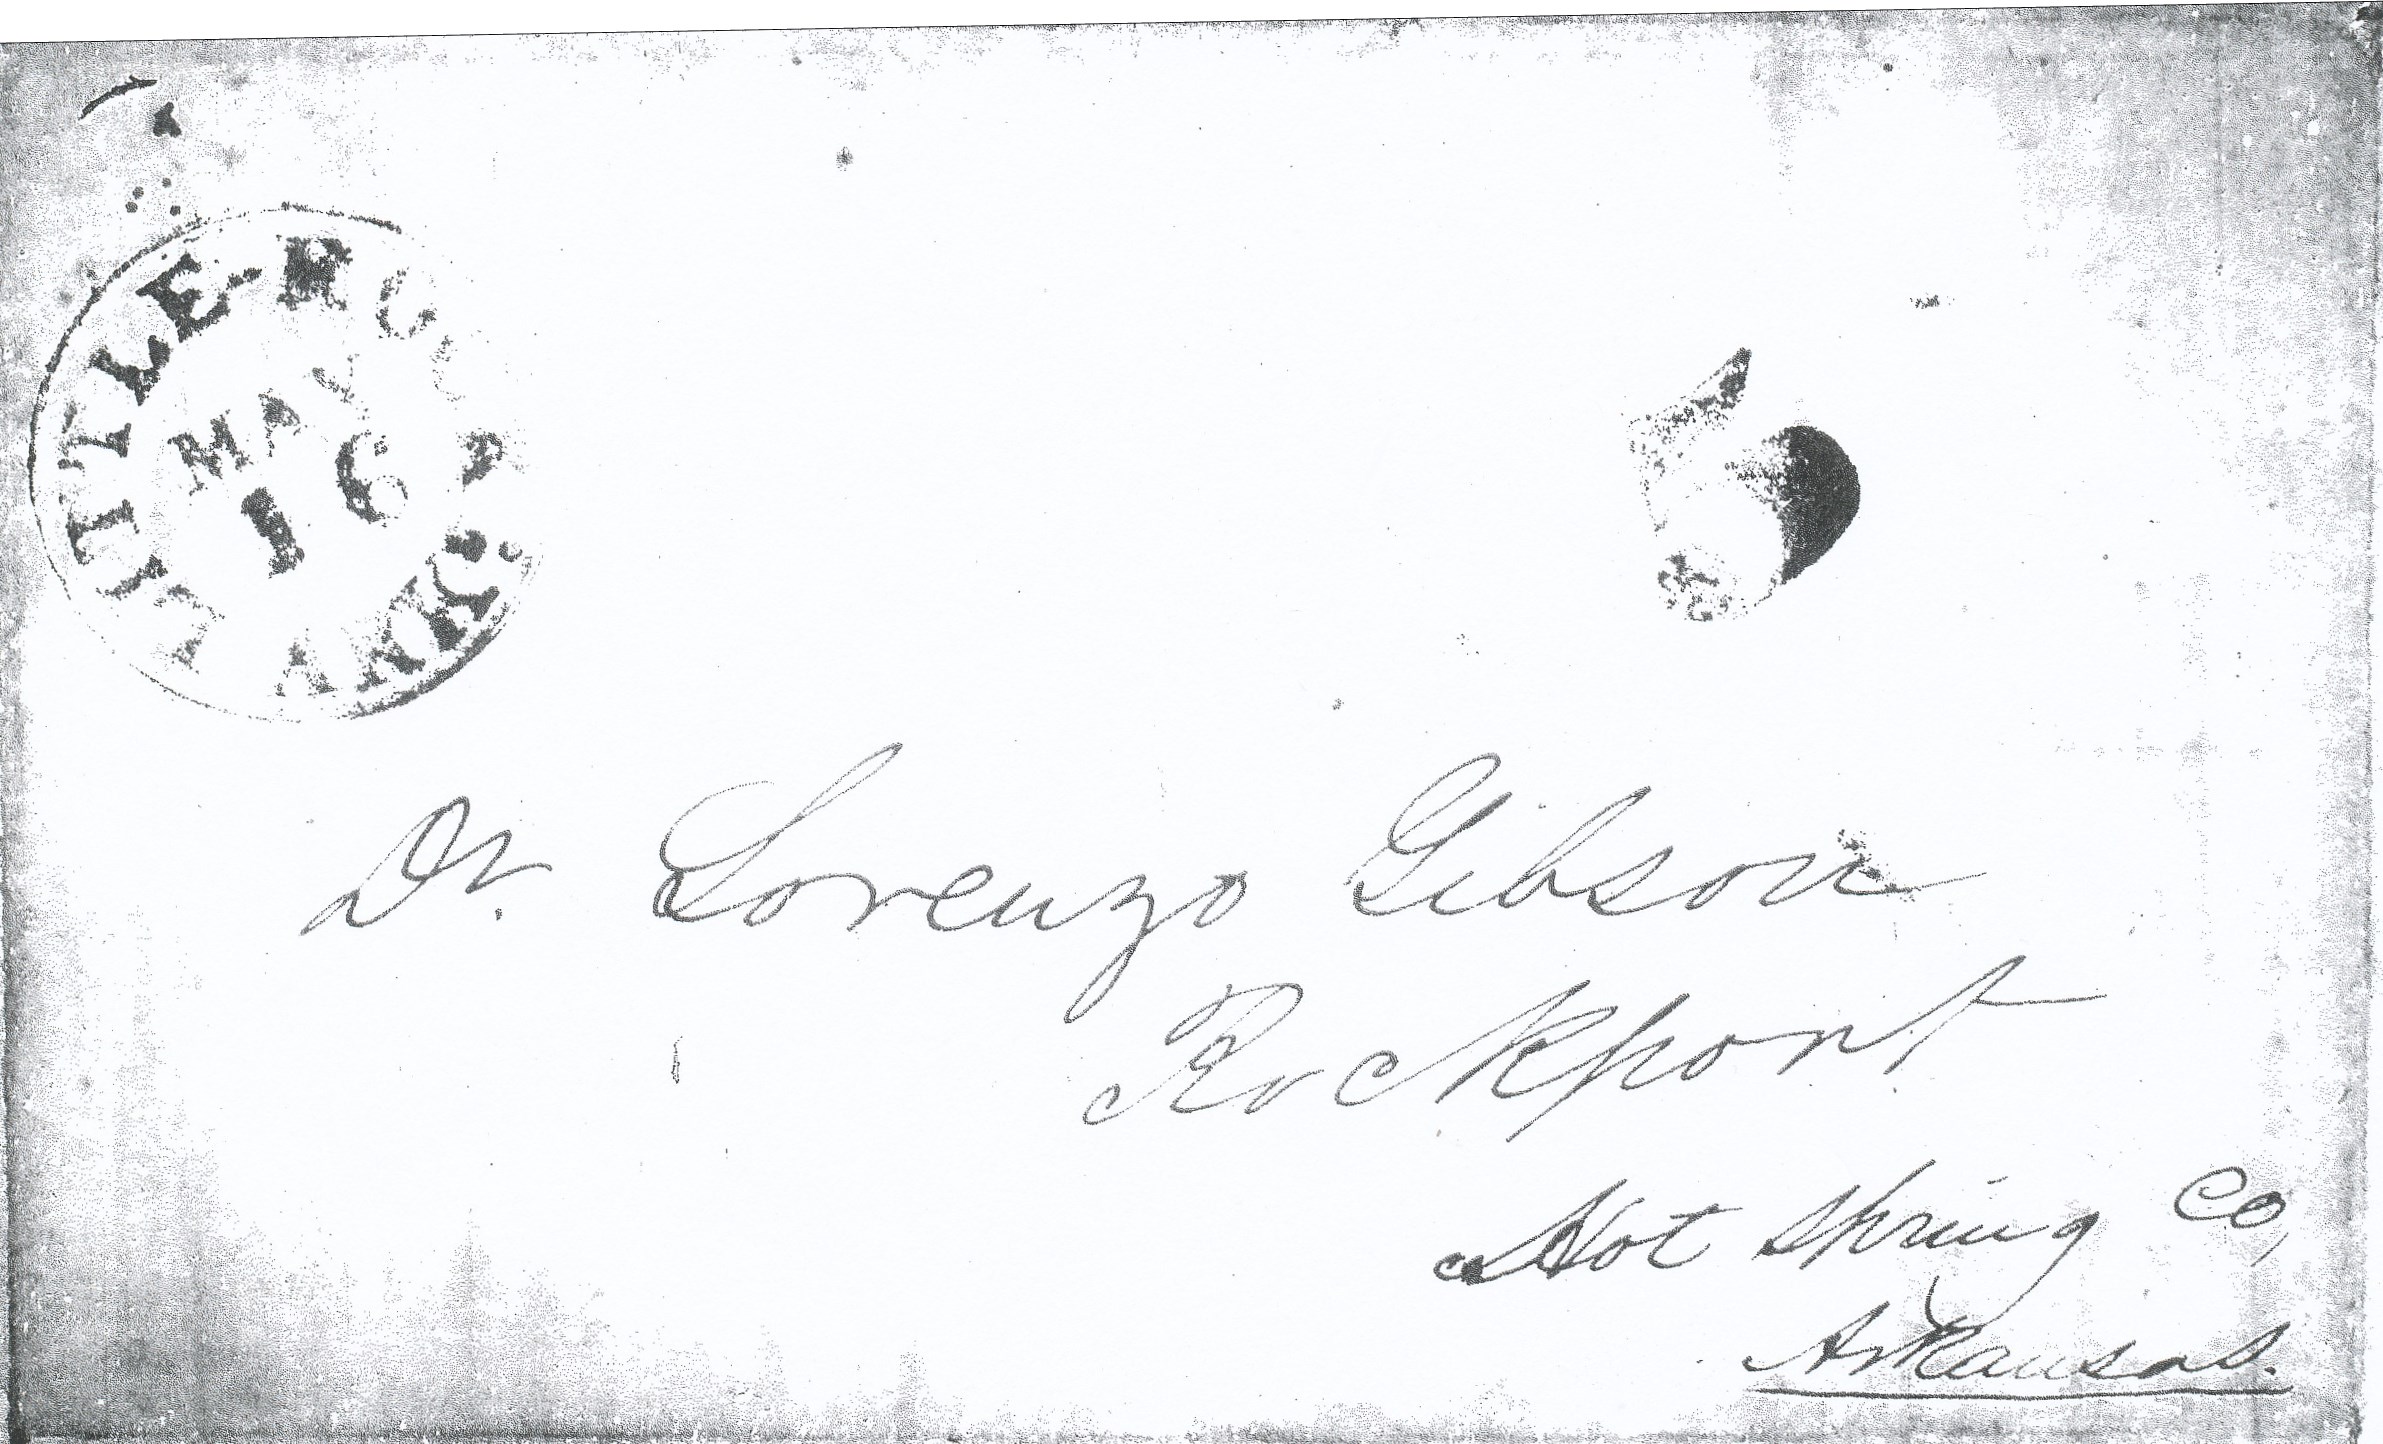 LITTLE-ROCK
MAY
16
ARK.
5
Dr. Lorenzo Gibson
Rockport
Hot Spring Co,
Arkansas.